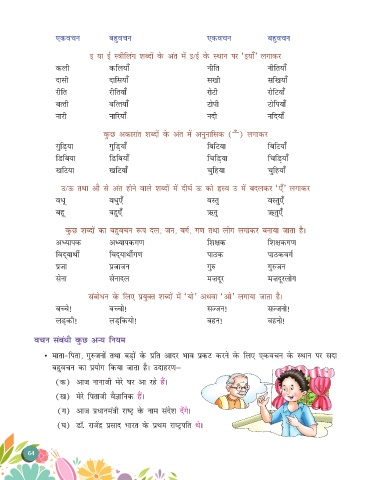 एकवचन बहुवचन एकवचन बहुवचन
इ या ई स्त्रीलिंग शब्दों के अंत में इ/ई के स्थान पर 'इयाँ' लगाकर
कली कलियाँ नीति नीतियाँ
दासी दासियाँ सखी सखियाँ
रीति रीतियाँ रोटी रोटियाँ
बल्ली बल्लियाँ टोपी टोपियाँ
नारी नारियाँ नदी नदियाँ
कुछ अकारांत शब्दों के अंत में अनुनासिक ( ँ ) लगाकर
गुड़िया गुड़ियाँ बिटिया बिटियाँ
डिबिया डिबियाँ चिड़िया चिड़ियाँ
खटिया खटियाँ चुहिया चुहियाँ
उ/ऊ तथा औ से अंत होने वाले शब्दों में दीर्घ ऊ को ह्रस्व उ में बदलकर 'एँ' लगाकर
वधू वधुएँ वस्तु वस्तुएँ
बहू बहुएँ ऋतु ऋतुएँ
कुछ शब्दों का बहुवचन रूप दल, जन, वर्ग, गण तथा लोग लगाकर बनाया जाता है।
अध्यापक अध्यापकगण शिक्षक शिक्षकगण
विद्यार्थी विद्यार्थीगण पाठक पाठकवर्ग
प्रजा प्रजाजन गुरु गुरुजन
सेना सेनादल मज़दूर मज़दूरलोग
संबोधन के लिए प्रयुक्त शब्दों में 'यो' अथवा 'ओ' लगाया जाता है।
बच्चे! बच्चो! सज्जन! सज्जनो!
लड़की! लड़कियो! बहन! बहनो!
वचन संबंधी कुछ अन्य नियम
• माता-पिता, गुरुजनों तथा बड़ों के प्रति आदर भाव प्रकट करने के लिए एकवचन के स्थान पर सदा
बहुवचन का प्रयोग किया जाता है। उदाहरण–
(क) आज नानाजी मेरे घर आ रहे हैं।
(ख) मेरे पिताजी वैज्ञानिक हैं।
(ग) आज प्रधानमंत्री राष्ट्र के नाम संदेश देंगे।
(घ) डॉ. राजेंद्र प्रसाद भारत के प्रथम राष्ट्रपति थे।
64